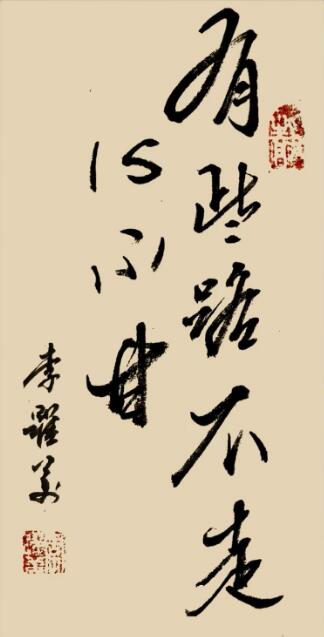 有些路不走
心不甘
李